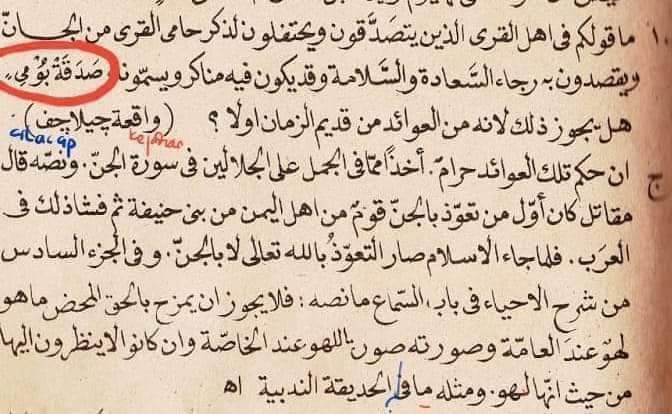 ١٠ ما قولكم فى اهل القرى الذين يتصدّقون ويحتفلون لذكر حامى القرى من الجانّ
ويقصدون به رجاء السّعادة والسّلامة وقد يكون فيه مناكر ويسمّونه صَدَقَةْ بُوْمِيْ،
هل يجوز ذلك لانه من العوائد من قديم الزمان اولا ؟ (واقعة چيلاچف)
cilacap
ج ان حكم تلك العوائد حرامٌ. أخذاً ممّا فى الجمل على الجلالين فى سورة الجنّ. ونصّه قال
مقاتل كان أوّل من تعوّذ بالجنّ قومٌ من اهل اليمن من بنى حنيفة ثم فشا ذلك فى
العرَب. فلما جاء الاسلام صار التعوّذُ بالله تعالى لا بالجنّ. وفى الجزء السادس
من شرح الاحياء فى باب السّماع ما نصه : فلا يجوز ان يمزح بالحق المحض ما هو
لهوٌ عندَ العامّة وصورته صورة اللهو عند الخاصّة وان كانوا لا ينظرون اليها
من حيث انها لهو. ومثله ما فى الحديقة الندبية اه